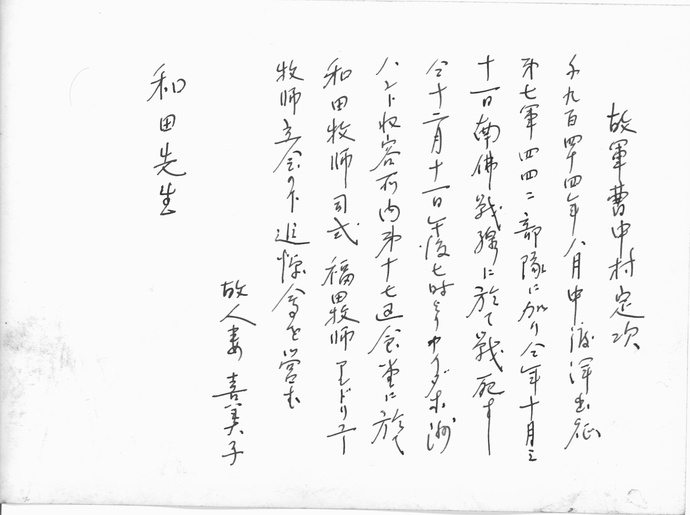 故軍曹中村定次
千九百四十四年八月中渡洋出征
第七軍四四二部隊に加り仝年十月三
十一日南佛戦線に於て戦死す
仝十二月十一日午後七時よりアイダホ洲
ハント収容所内第十七区会堂に於て
和田牧師司式福田牧師アンドリユー
牧師立会の下追悼会を営む
故人妻 喜美子
和田先生